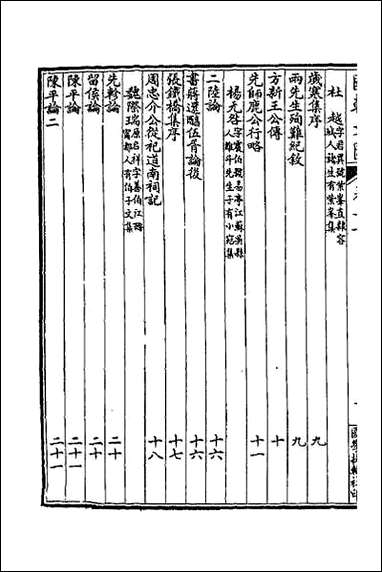 杜 越 字君異號紫峯直隸容城人諸生有紫峯集
歲寒集序 九
兩先生殉難紀敘 九
方新王公傳 十
先師鹿公行略 十一
楊无咎 字震伯號易亭江蘇吳縣人維斗先生子有小宛集
二陸論 十六
書蔣選隨伍晉論後 十六
張鐵橋集序 十七
周忠介公從祀道南祠記 十八
魏際瑞 原名祥字善伯江西寧都人有伯子文集
先軫論 二十
留侯論 二十
陳平論 二十一
陳平論二 二十一